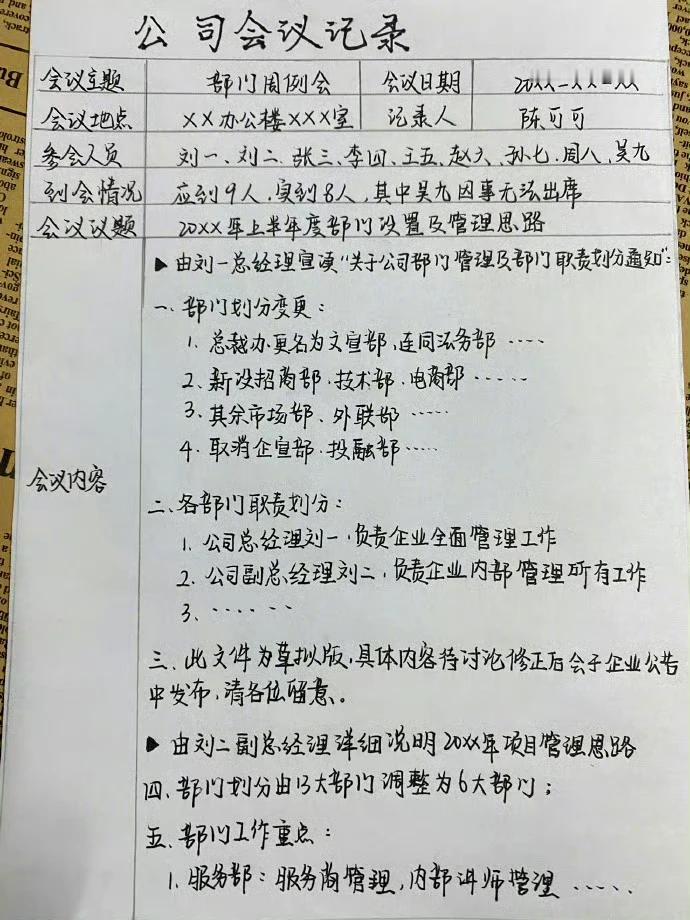 公司会议记录
会议主题 部门周例会 会议日期 20XX-XX-XX
会议地点 XX办公楼XXX室 记录人 陈可可
参会人员 刘一、刘二、张三、李四、王五、赵六、孙七、周八、吴九
到会情况 应到9人,实到8人,其中吴九因事无法出席
会议议题 20XX年上半年度部门设置及管理思路
▶由刘一总经理宣项“关于公司部门管理及部门职责划分通知”:
一、部门划分变更:
1. 总裁办更名为文宣部,连同法务部 ·····
2、新设招商部、技术部、电商部 ······
3. 其余市场部、外联部 ·····
4. 取消企宣部、投融部·····
会议内容
二、各部门职责划分:
1. 公司总经理刘一,负责企业全面管理工作
2. 公司副总经理刘二,负责企业内部管理所有工作
3. ······
三、此文件为草拟版,具体内容待讨论修正后会于企业公告
中发布,请各位留意。
▶由刘二副总经理详细说明20XX年项目管理思路
四、部门划分由13大部门调整为6大部门;
五、部门工作重点:
1. 服务部:服务商管理,内部讲师管理 ·····